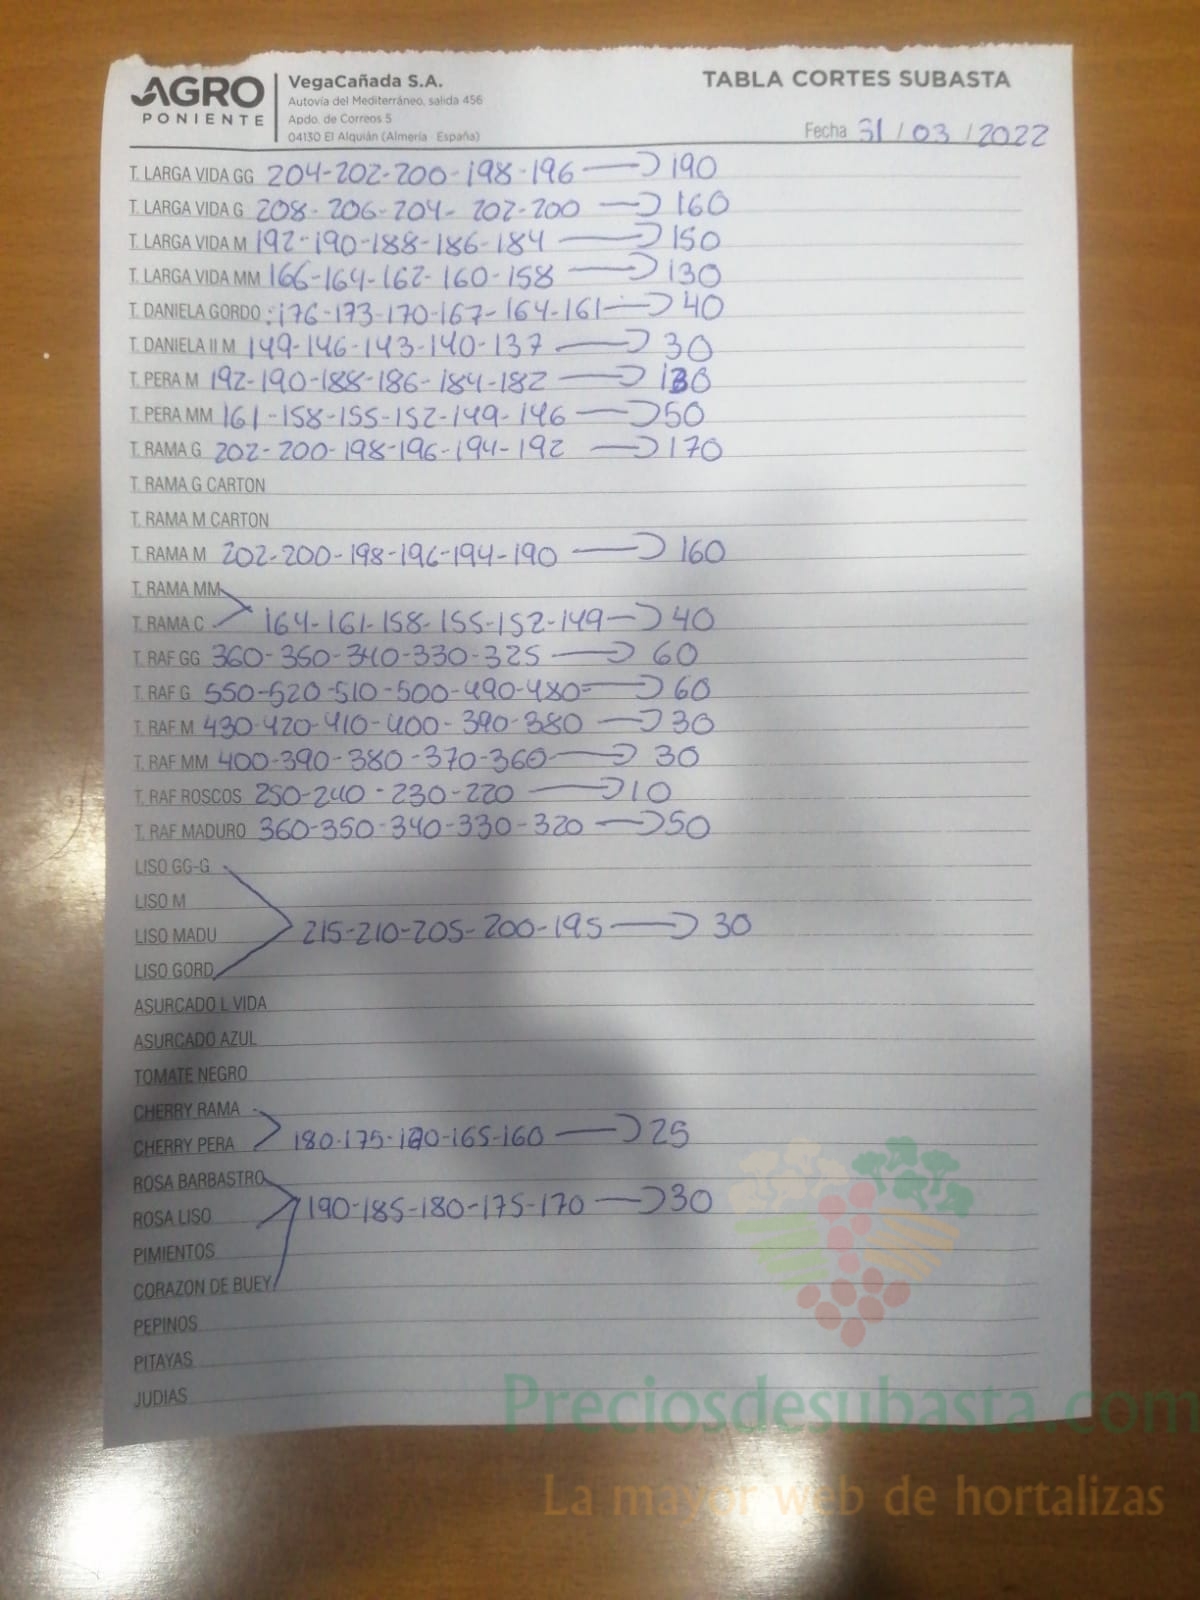 AGRO
PONIENTE
VegaCañada S.A.
Autovía del Mediterráneo, salida 456
Apdo. de Correos 5
04130 El Alquián (Almería España)
TABLA CORTES SUBASTA
Fecha 31/03/2022
T. LARGA VIDA GG 204-202-200-198-196 → 190
T. LARGA VIDA G 208-206-204-202-200 → 160
T. LARGA VIDA M 192-190-188-186-184 → 150
T. LARGA VIDA MM 166-164-162-160-158 → 130
T. DANIELA GORDO: 176-173-170-167-164-161 → 40
T. DANIELA II M 149-146-143-140-137 → 30
T. PERA M 192-190-188-186-184-182 → 130
T. PERA MM 161-158-155-152-149-146 → 50
T. RAMA G 202-200-198-196-194-192 → 170
T. RAMA G CARTON
T. RAMA M CARTON
T. RAMA M 202-200-198-196-194-190 → 160
T. RAMA MM
T. RAMA C 164-161-158-155-152-149 → 40
T. RAF GG 360-350-340-330-325 → 60
T. RAF G 550-520-510-500-490-480 → 60
T. RAF M 430-420-410-400-390-380 → 30
T. RAF MM 400-390-380-370-360 → 30
T. RAF ROSCOS 250-240-230-220 → 10
T. RAF MADURO 360-350-340-330-320 → 50
LISO GG-G
LISO M
LISO MADU 215-210-205-200-195 → 30
LISO GORD
ASURCADO L VIDA
ASURCADO AZUL
TOMATE NEGRO
CHERRY RAMA
CHERRY PERA 180-175-170-165-160 → 25
ROSA BARBASTRO
ROSA LISO 190-185-180-175-170 → 30
PIMIENTOS
CORAZON DE BUEY
PEPINOS
PITAYAS
JUDIAS
Preciosdesubasta.com
La mayor web de hortalizas